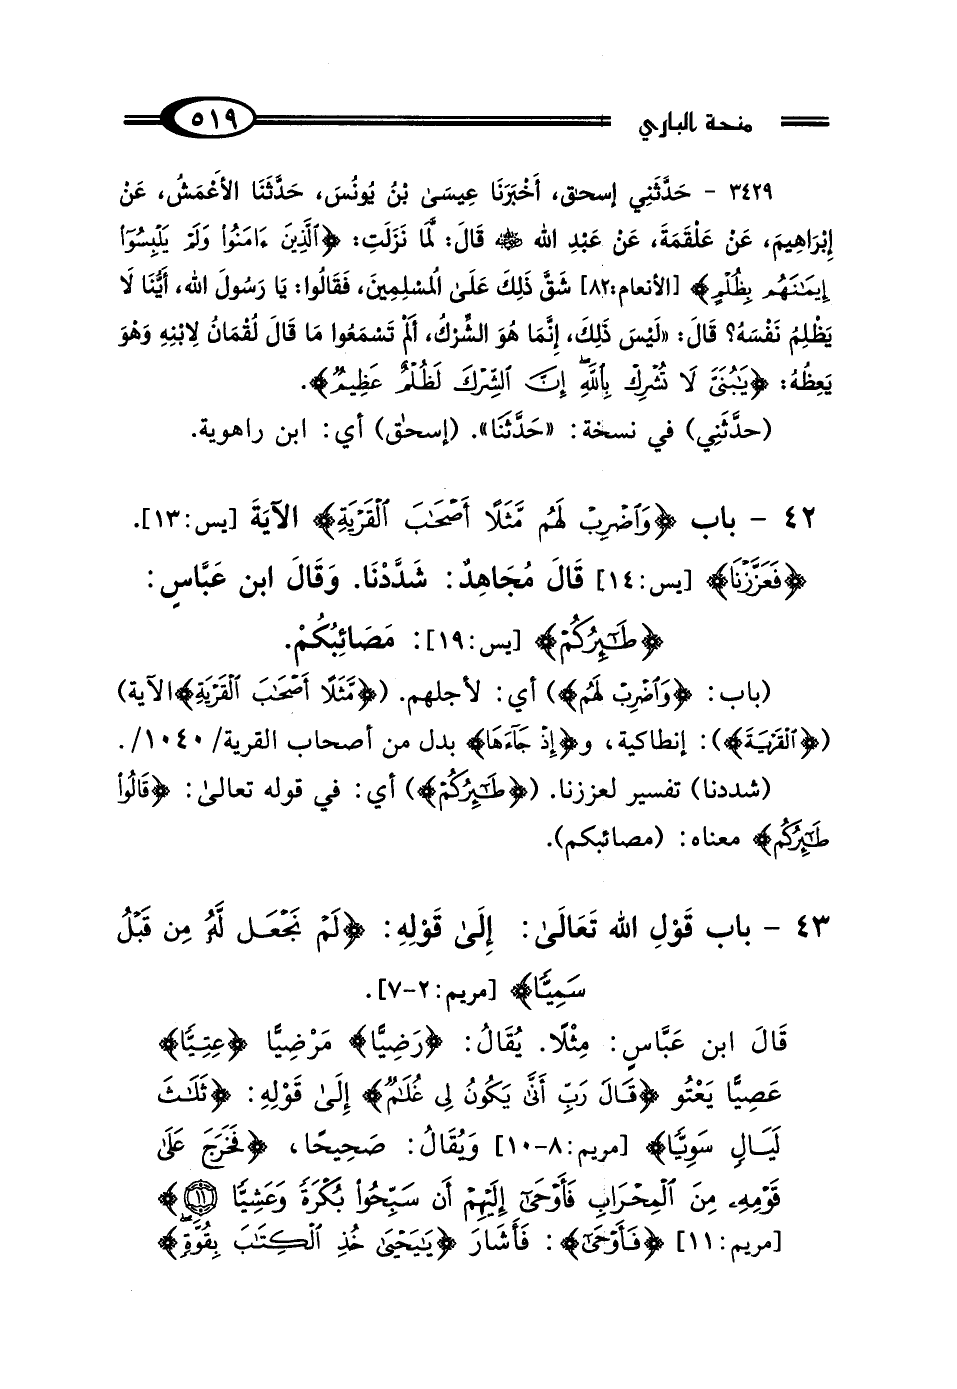 منحة الباري ٥١٩
٣٤٢٩ - حَدَّثَنِي إسحٰق، أَخْبَرَنَا عِيسَىٰ بْنُ يُونُسَ، حَدَّثَنَا الأَعْمَشُ، عَنْ
إِبْرَاهِيمَ، عَنْ عَلْقَمَةَ، عَنْ عَبْدِ الله ﷺ قَالَ: لَمَّا نَزَلَتِ: ﴿ٱلَّذِينَ ءَامَنُوا۟ وَلَمْ يَلْبِسُوٓا۟
إِيمَٰنَهُم بِظُلْمٍ﴾ [الأنعام:٨٢] شَقَّ ذَلِكَ عَلَىٰ الْمُسْلِمِينَ، فَقَالُوا: يَا رَسُولَ الله، أَيُّنَا لَا
يَظْلِمُ نَفْسَهُ؟ قَالَ: «لَيْسَ ذَلِكَ، إِنَّمَا هُوَ الشِّرْكُ، أَلَمْ تَسْمَعُوا مَا قَالَ لُقْمَانُ لِابْنِهِ وَهْوَ
يَعِظُهُ: ﴿يَٰبُنَىَّ لَا تُشْرِكْ بِٱللَّهِ ۖ إِنَّ ٱلشِّرْكَ لَظُلْمٌ عَظِيمٌ﴾.
(حدَّثَنِي) في نسخة: «حَدَّثَنَا». (إسحٰق) أي: ابن راهوية.
٤٢ - باب ﴿وَٱضْرِبْ لَهُم مَّثَلًا أَصْحَٰبَ ٱلْقَرْيَةِ﴾ الآيَةَ [يس:١٣].
﴿فَعَزَّزْنَا﴾ [يس:١٤] قَالَ مُجَاهِدٌ: شَدَّدْنَا. وَقَالَ ابن عَبَّاسٍ:
﴿طَٰٓئِرُكُمْ﴾ [يس:١٩]: مَصَائِبُكُمْ.
(باب: ﴿وَٱضْرِبْ لَهُم﴾) أي: لأجلهم. (﴿مَّثَلًا أَصْحَٰبَ ٱلْقَرْيَةِ﴾الآية)
(﴿ٱلْقَرْيَةَ﴾): إنطاكية، و﴿إِذْ جَآءَهَا﴾ بدل من أصحاب القرية/١٠٤٠/.
(شددنا) تفسير لعززنا. (﴿طَٰٓئِرُكُمْ﴾) أي: في قوله تعالىٰ: ﴿قَالُوا۟
طَٰٓئِرُكُم﴾ معناه: (مصائبكم).
٤٣ - باب قَوْلِ الله تَعَالَىٰ: إِلَىٰ قَوْلِهِ: ﴿لَمْ نَجْعَل لَّهُۥ مِن قَبْلُ
سَمِيًّا﴾ [مريم:٢-٧].
قَالَ ابن عَبَّاسٍ: مِثْلًا. يُقَالُ: ﴿رَضِيًّا﴾ مَرْضِيًّا ﴿عِتِيًّا﴾
عَصِيًّا يَعْتُو ﴿قَالَ رَبِّ أَنَّىٰ يَكُونُ لِى غُلَٰمٌ﴾ إِلَىٰ قَوْلِهِ: ﴿ثَلَٰثَ
لَيَالٍ سَوِيًّا﴾ [مريم:٨-١٠] وَيُقَالُ: صَحِيحًا، ﴿فَخَرَجَ عَلَىٰ
قَوْمِهِۦ مِنَ ٱلْمِحْرَابِ فَأَوْحَىٰٓ إِلَيْهِمْ أَن سَبِّحُوا۟ بُكْرَةً وَعَشِيًّا ١١﴾
[مريم:١١] ﴿فَأَوْحَىٰٓ﴾: فَأَشَارَ ﴿يَٰيَحْيَىٰ خُذِ ٱلْكِتَٰبَ بِقُوَّةٍ ۖ﴾